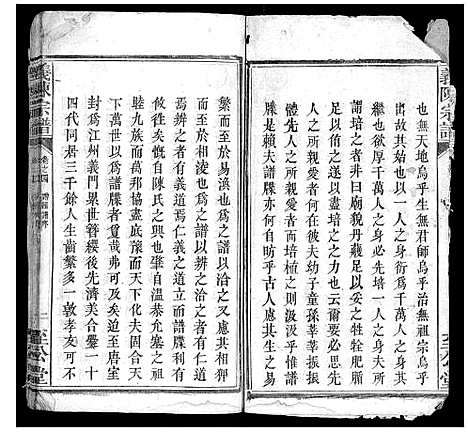 義陳宗譜
無天地烏乎生無君師烏乎治無祖宗烏乎
出故其始也以一人之身衍為千萬人之身其
繼也欲厚千萬人之身必先培一人之身其
謂培之者非曰廟貌丹雘足以妥之牲牷肥腯
足以侑之必遂以盡培之之力也云爾要必思先
人之所親愛者何在彼夫幼子童孫莘莘振振
者先人之所親愛者而培植之則
牒是賴夫譜牒亦何自昉乎古人慮其生之易
至公堂
繁而至於易渙也為之譜以洽之又慮其相狎
而無以辨也為之譜以辨之洽之者有仁道
焉辨之者有義道焉仁義之道立而譜牒利有
下萬世以為譜牒者質哉弗可及矣迨至唐室
睦九族而萬邦協盡庭疑而天下化夫固合天
也已自來陳氏之興也肇自溫恭允塞之祖
封為江州義門累世簪纓後先濟美合爨一十
四代同居三千餘人生齒繁多一敦孝友可不
義陳宗譜
卷之四
二
至公堂